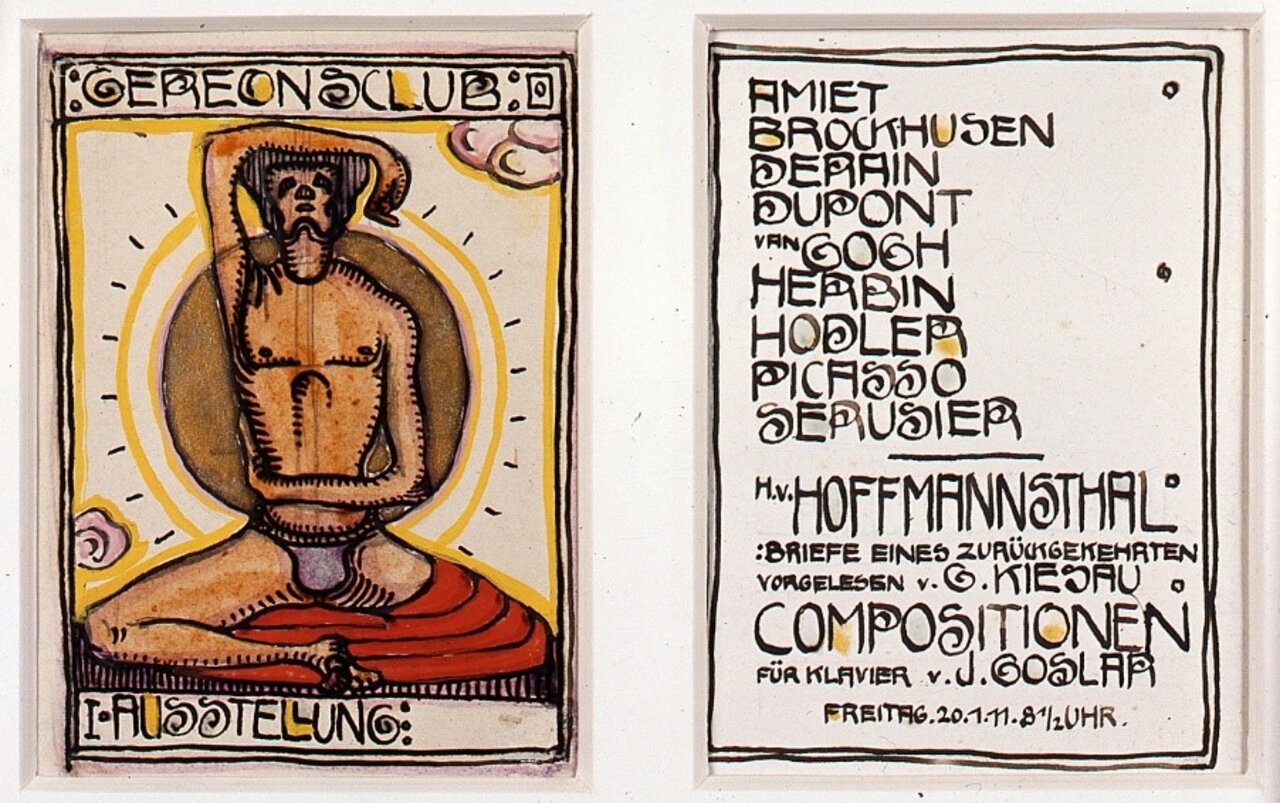 :GEREONSCLUB:
I·AUSSTELLUNG:
AMIET
BROCKHUSEN
DERAIN
DUPONT
VAN GOGH
HERBIN
HODLER
PICASSO
SERUSIER
H.v. HOFFMANNSTHAL:
:BRIEFE EINES ZURÜCKGEKEHRTEN
VORGELESEN v. G. KIESAU
COMPOSITIONEN
FÜR KLAVIER v. J. GOSLAR
FREITAG.20.1.11.8 1/2 UHR.